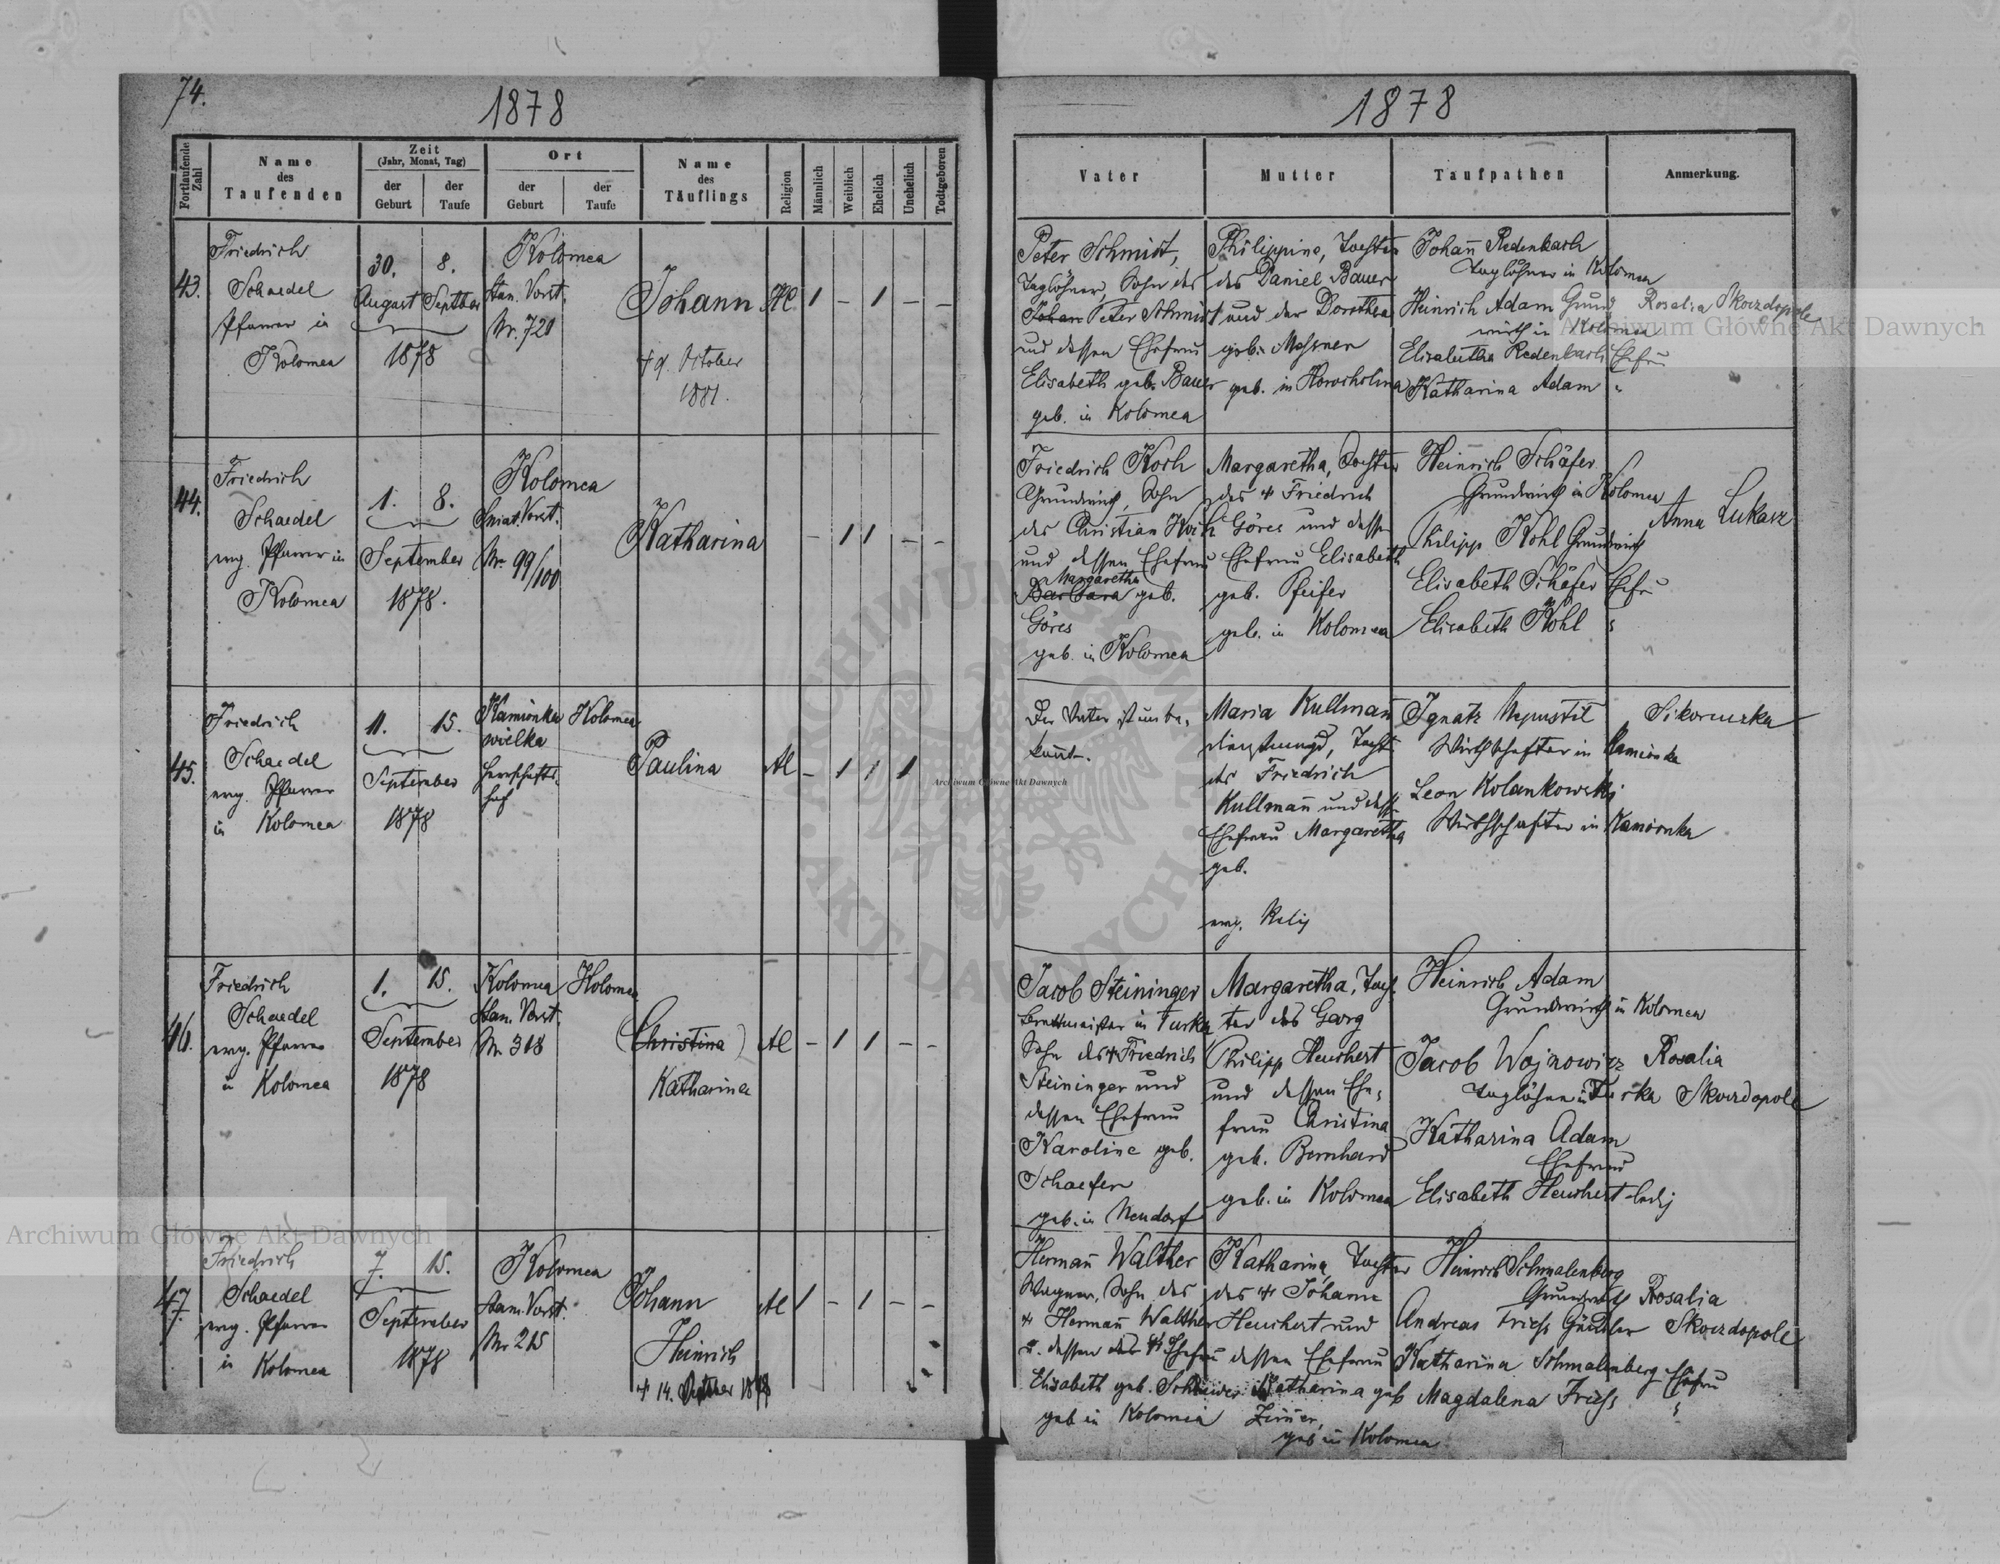 74.
1878
1878
Fortlaufende Zahl
Name des Taufenden
Zeit
(Jahr, Monat, Tag)
der Geburt
der Taufe
Ort
der Geburt
der Taufe
Name des Täuflings
Religion
Männlich
Weiblich
Ehelich
Unehelich
Todtgeboren
Vater
Mutter
Taufpathen
Anmerkung.
43.
Friedrich
Schaedel
Pfarrer in
Kolomea
30. 8.
August Septber
1878
Kolomea
Stan. Vorst.
Nr. 720
Johann
† 9. October
1881.
1 – 1 – –
Peter Schmidt,
Taglöhner, Sohn des
Johan Peter Schmidt
und dessen Ehefrau
Elisabeth geb. Bauer
geb. in Kolomea
Philippine, Tochter
des Daniel Bauer
und der Dorothea
geb. Messner
geb. in Horocholina
Johann Redenbach
Taglöhner in Kolomea
Heinrich Adam Grund
wirth in Kolomea
Elisabetha Redenbach Ehefr
Katharina Adam "
Rosalia Skorzdopole
44.
Friedrich
Schaedel
evg. Pfarrer in
Kolomea
1. 8.
September
1878.
Kolomea
Sniat. Vorst.
Nr. 99/100
Katharina
– 1 1 – –
Friedrich Koch
Grundwirth, Sohn
des Christian Koch
und dessen Ehefrau
Margaretha
Barbara geb.
Göres
geb. in Kolomea
Margaretha, Tochter
des † Friedrich
Göres und dessen
Ehefrau Elisabeth
geb. Pfeifer
geb. in Kolomea
Heinrich Schäfer
Grundwirth in Kolomea
Philipp Kohl Grundwirth
Elisabeth Schäfer Ehefr
Elisabeth Kohl "
Anna Lukasz
45.
Friedrich
Schaedel
evg. Pfarrer
in Kolomea
11. 15.
September
1878
Kamionka
wielka
Herrschafts
hof
Kolomea
Paulina
– 1 1 1
Der Vater ist unbe-
kannt.
Maria Kullmann
Dienstmagd, Tocht
des Friedrich
Kullmann und dess.
Ehefrau Margaretha
geb.
evg. Relig
Ignatz
Wirthschafter in Kamionka
Leon Kolankowski
Wirthschafter in Kamionka
46.
Friedrich
Schaedel
evg. Pfarrer
in Kolomea
1. 15.
September
1878
Kolomea
Stan. Vorst.
Nr. 318
Kolomea
(Christina)
Katharina
– 1 1 – –
Jacob Steininger
in Turka
Sohn des † Friedrich
Steininger und
dessen Ehefrau
Karoline geb.
Schaefer
geb. in Neudorf
Margaretha, Toch-
ter des Georg
Philipp Heuchert
und dessen Ehe-
frau Christina
geb. Bernhard
geb. in Kolomea
Heinrich Adam
Grundwirth in Kolomea
Jacob Wojnowicz
Taglöhner in Turka
Katharina Adam
Ehefrau
Elisabeth Heuchert ledig
Rosalia
Skorzdopole
47.
Friedrich
Schaedel
evg. Pfarrer
in Kolomea
7. 15.
September
1878
Kolomea
Stan. Vorst.
Nr 215
Johann
Heinrich
† 14. 1878
1 – 1 – –
Hermann Walther
Wagner, Sohn des
† Hermann Walther
u. dessen Ehefrau
Elisabeth geb.
geb in Kolomea
Katharina, Tochter
des † Johann
Heuchert und
dessen Ehefrau
Katharina geb
Zimer,
geb in Kolomea
Heinrich Schmalenberg
Grundwirth
Andreas Friess
Katharina Schmalenberg Ehefrau
Magdalena Friess "
Rosalia
Skorzdopole
Archiwum Główne Akt Dawnych
Archiwum Główne Akt Dawnych
Archiwum Główne Akt Dawnych
ARCHIWUM
AKT DAWNYCH